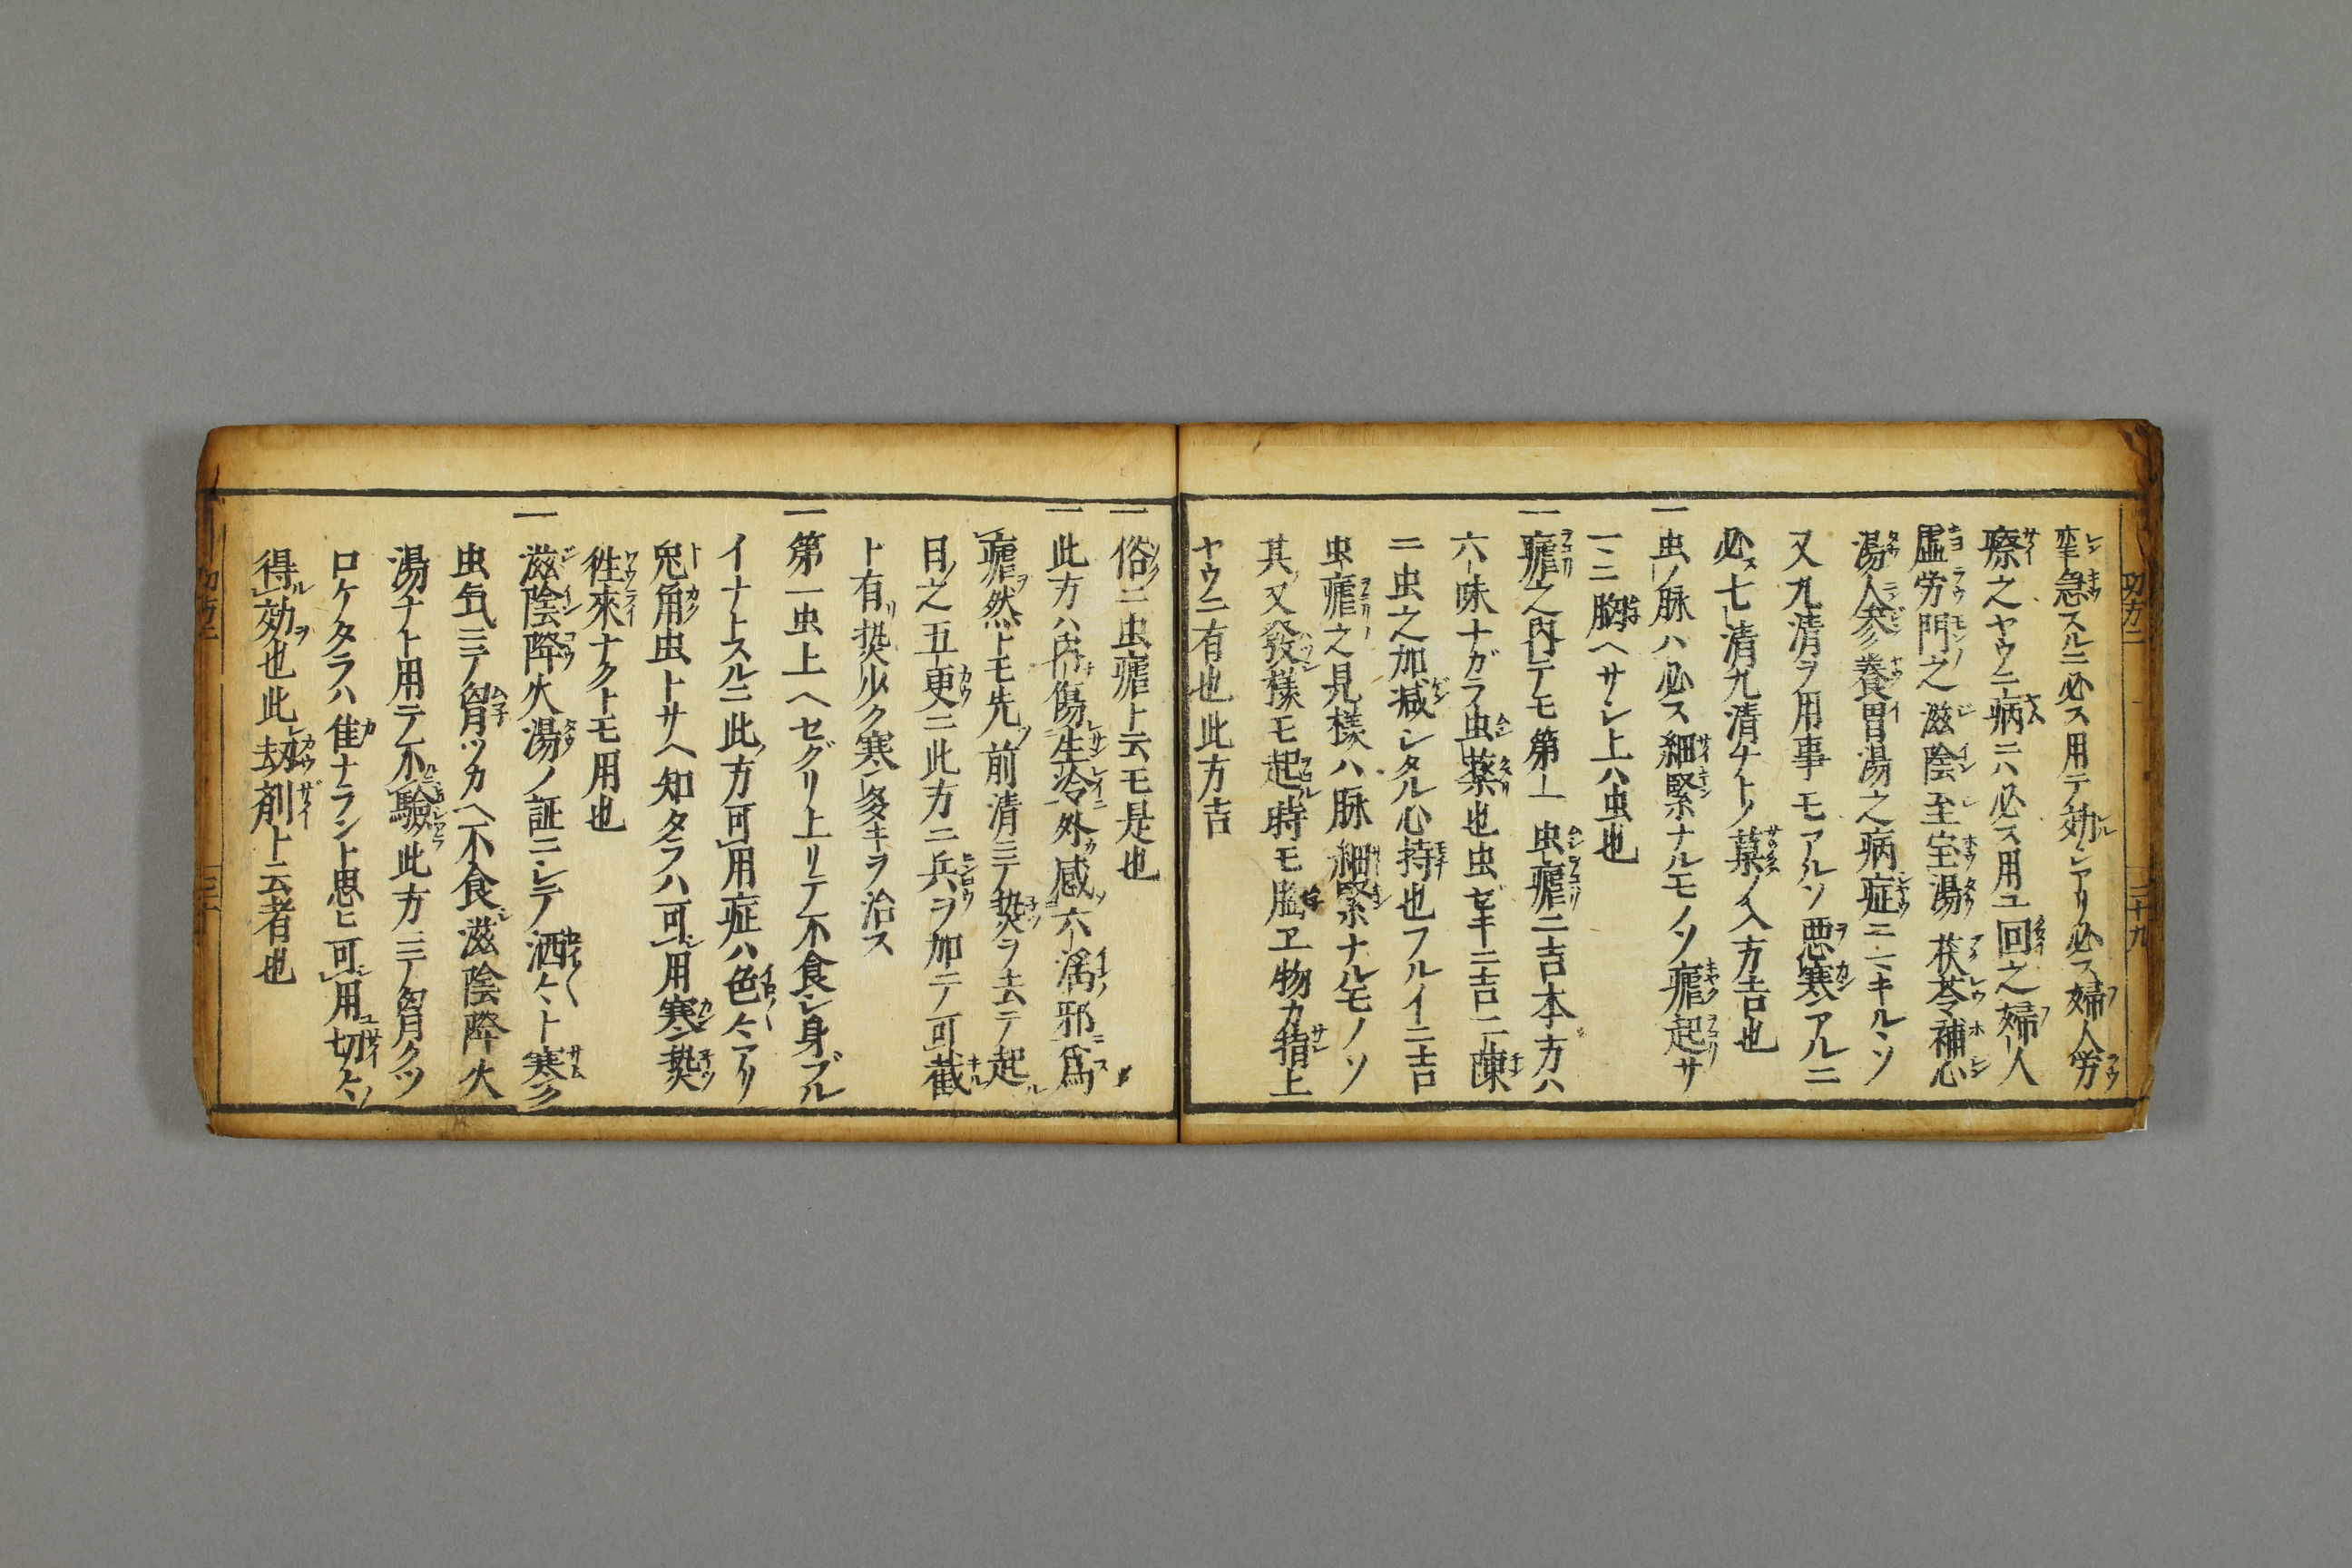 攣急スルニ必ス用テ効アリ必ス婦人労
瘵之ヤウニ病ニハ必ス用ユ回之婦人
虚労門之滋陰至宝湯茯苓補心
湯人参養胃湯之病症ニ二キルソ
又九清ヲ用事モアルソ悪寒アルニ
必ス七清九清ナトノ菓ノ入方吉也
一虫ノ脉ハ必ス細緊ナルモノソ瘧起サ
一ニ胸ヘサシ上ハ虫也
一瘧之内テモ第一虫瘧ニ吉本方ハ
六味ナガラ虫薬也虫ゼキニ吉二陳
ニ虫之加減シタル心持也フルイニ吉
虫瘧之見様ハ脉細緊ナルモノソ
其又發様モ起時モ脇ヱ物カ指上
ヤウニ有也此方吉
一俗ニ虫瘧ト云モ是也
一此方ハ内傷生冷外感六淫邪為
瘧然トモ先前清ニテ熱ヲ去テ起
日之五更ニ此方ニ兵ヲ加テ可截
ト有熱少ク寒多キヲ治ス
一第一虫上ヘセグリ上リテ不食シ身ブル
イナトスルニ此方可用症ハ色々アリ
兎角虫トサヘ知タラハ可用寒熱
徃來ナクトモ用也
一滋陰降火湯ノ証ニシテ洒々ト寒ク
虫気ニテ胷ツカヘ不食滋陰降火
湯ナト用テ不驗此方ニテ胷クツ
ロケタラハ佳ナラント思ヒ可用切々
得効也此劫剤ト云者也
功方二
二十九
功方二